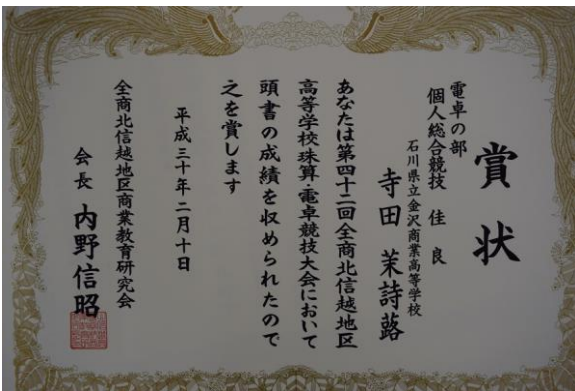 賞状
電卓の部
個人総合競技 佳良
石川県立金沢商業高等学校
寺田 茉詩蕗
あなたは第四十二回全商北信越地区
高等学校珠算・電卓競技大会において
頭書の成績を収められたので
之を賞します
平成三十年二月十日
全商北信越地区商業教育研究会
会長 内野信昭